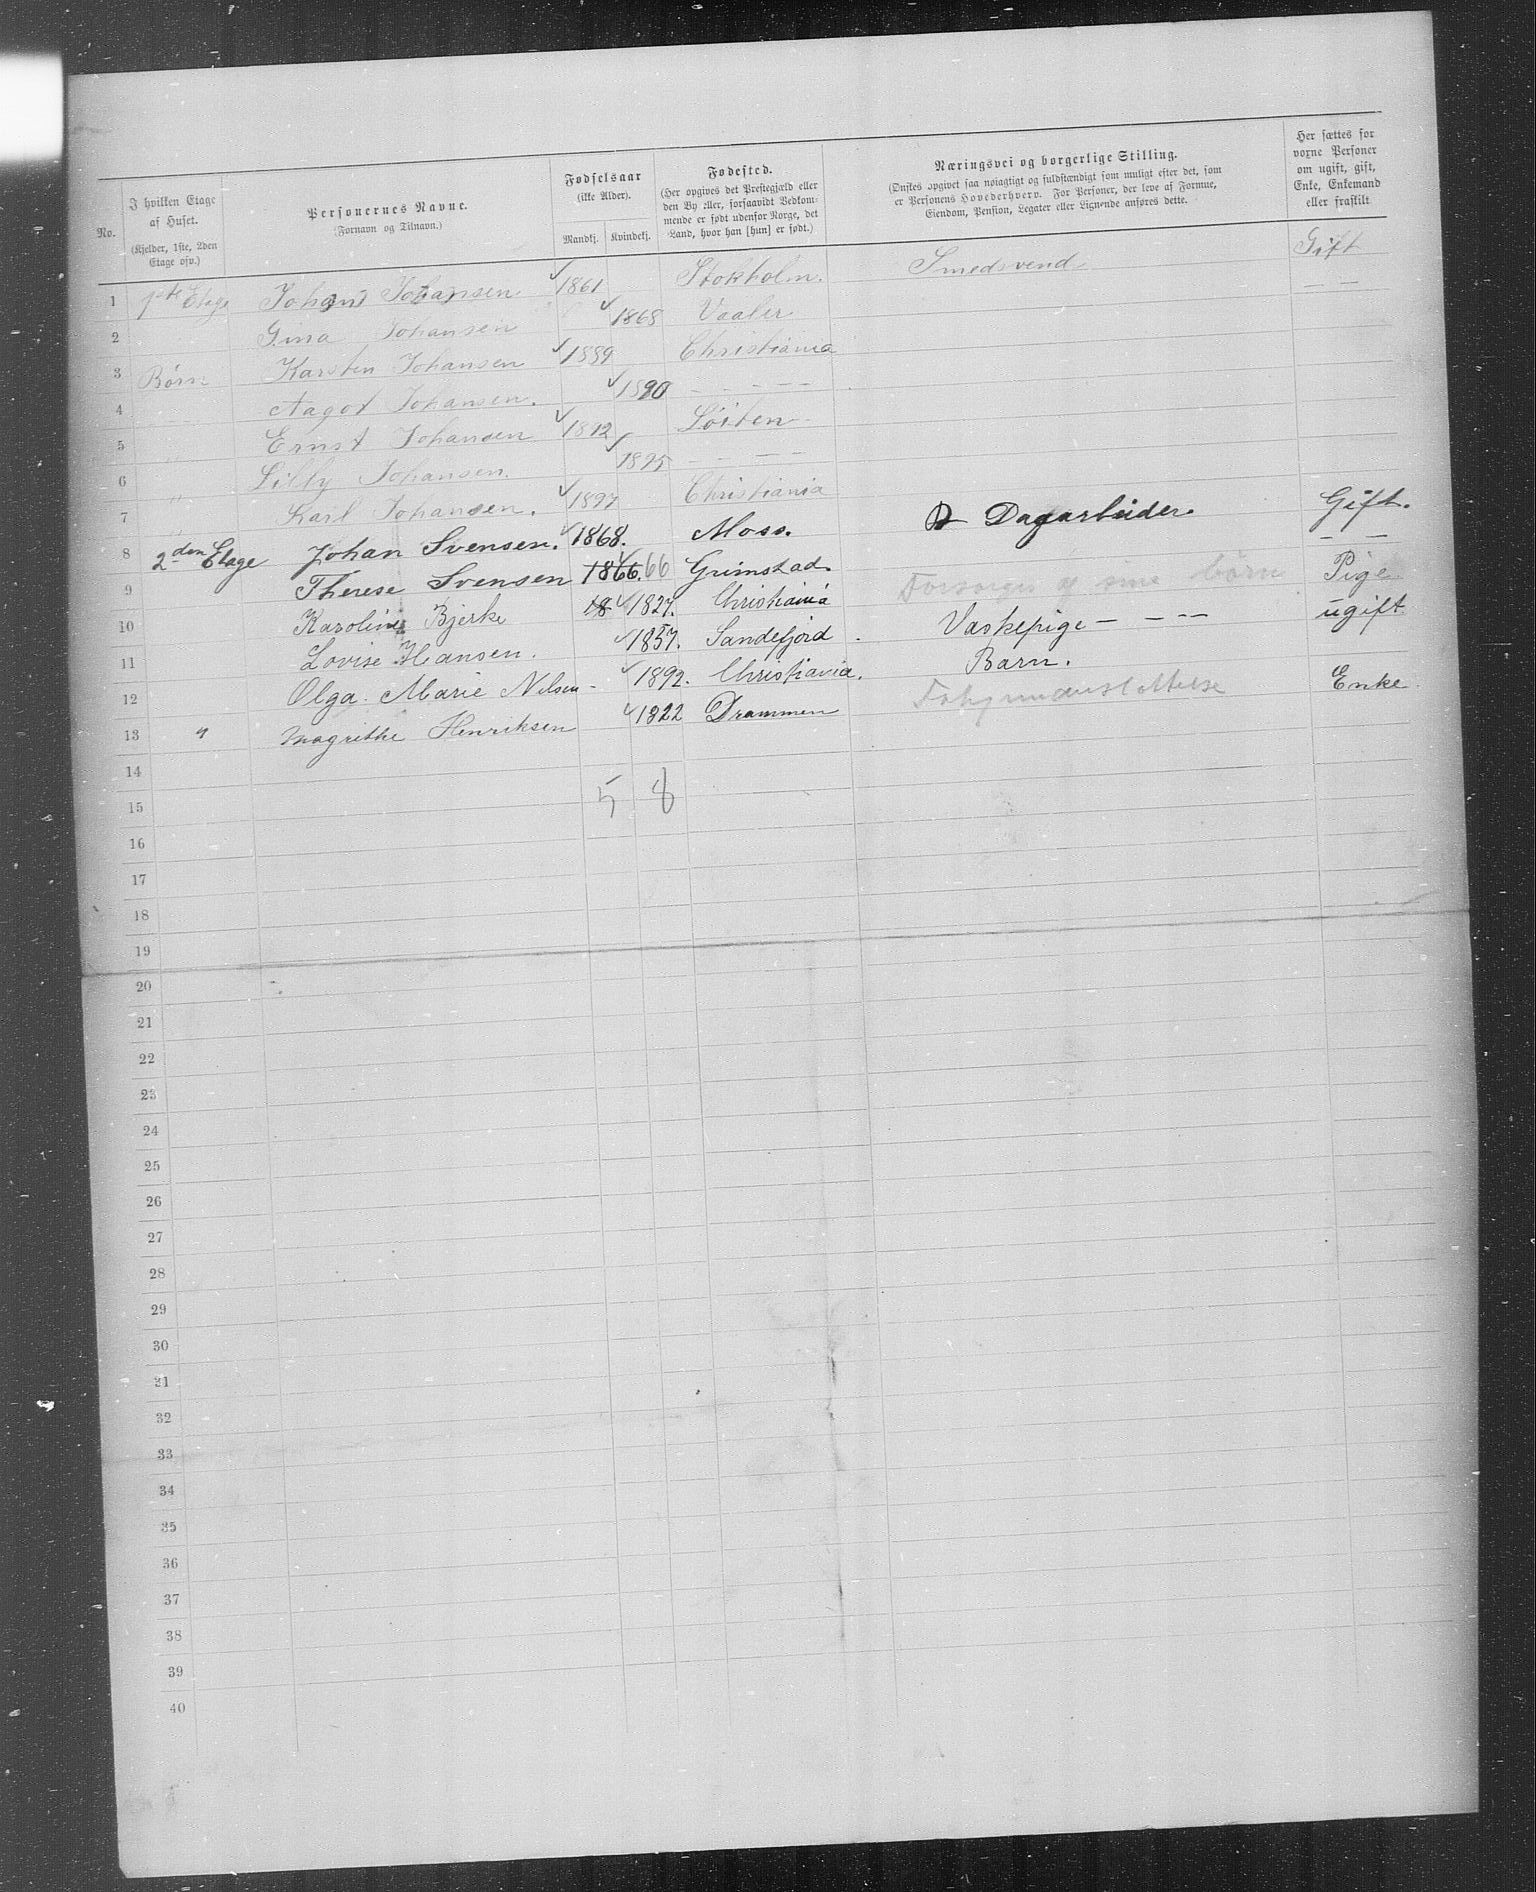 No.
I hvilken Etage af Huset.
(Kjelder, 1ste, 2den Etage osv.)
Personernes Navne.
(Fornavn og Tilnavn.)
Fødselsaar
(ikke Alder).
Mandkj. Kvindekj.
Fødested.
(Her opgives det Prestegjæld eller
den By eller, forsaavidt Vedkom-
mende er født udenfor Norge, det
Land, hvor han [hun] er født.)
Næringsvei og borgerlige Stilling.
(Ønskes opgivet saa nøiagtigt og fuldstændigt som muligt efter det, som
er Personens Hovederhverv. For Personer, der leve af Formue,
Eiendom, Pension, Legater eller Lignende anføres dette.
Her sættes for
voxne Personer
om ugift, gift,
Enke, Enkemand
eller fraskilt
1 1ste Etage Johan Johansen 1861 Stokholm. Smedsvend Gift
2 Gina Johansen 1868 Vaaler — —
3 Børn Karsten Johansen 1889 Christiania
4 Aagot Johansen. 1890 — — — — —
5 " Ernst Johansen 1892 Löiten
6 " Lilly Johansen. 1895 — — — —
7 " Karl Johansen. 1897 Christiania
8 2den Etage Johan Svensen. 1868. Moss. Dagarbeider. Gift.
9 Therese Svensen 1866. 66 Grimstad. — —
10 Karoline Bjerke 18 1827. Christiania Forsørges af sine Børn Pige
11 Lovise Hansen. 1857. Sandefjord. Vaskepige — — — ugift
12 Olga Marie Nilsen - 1892. Christiania. Barn.
13 " Magrethe Henriksen 1822 Drammen Enke
14
5 8
15
16
17
18
19
20
21
22
23
24
25
26
27
28
29
30
31
32
33
34
35
36
37
38
39
40